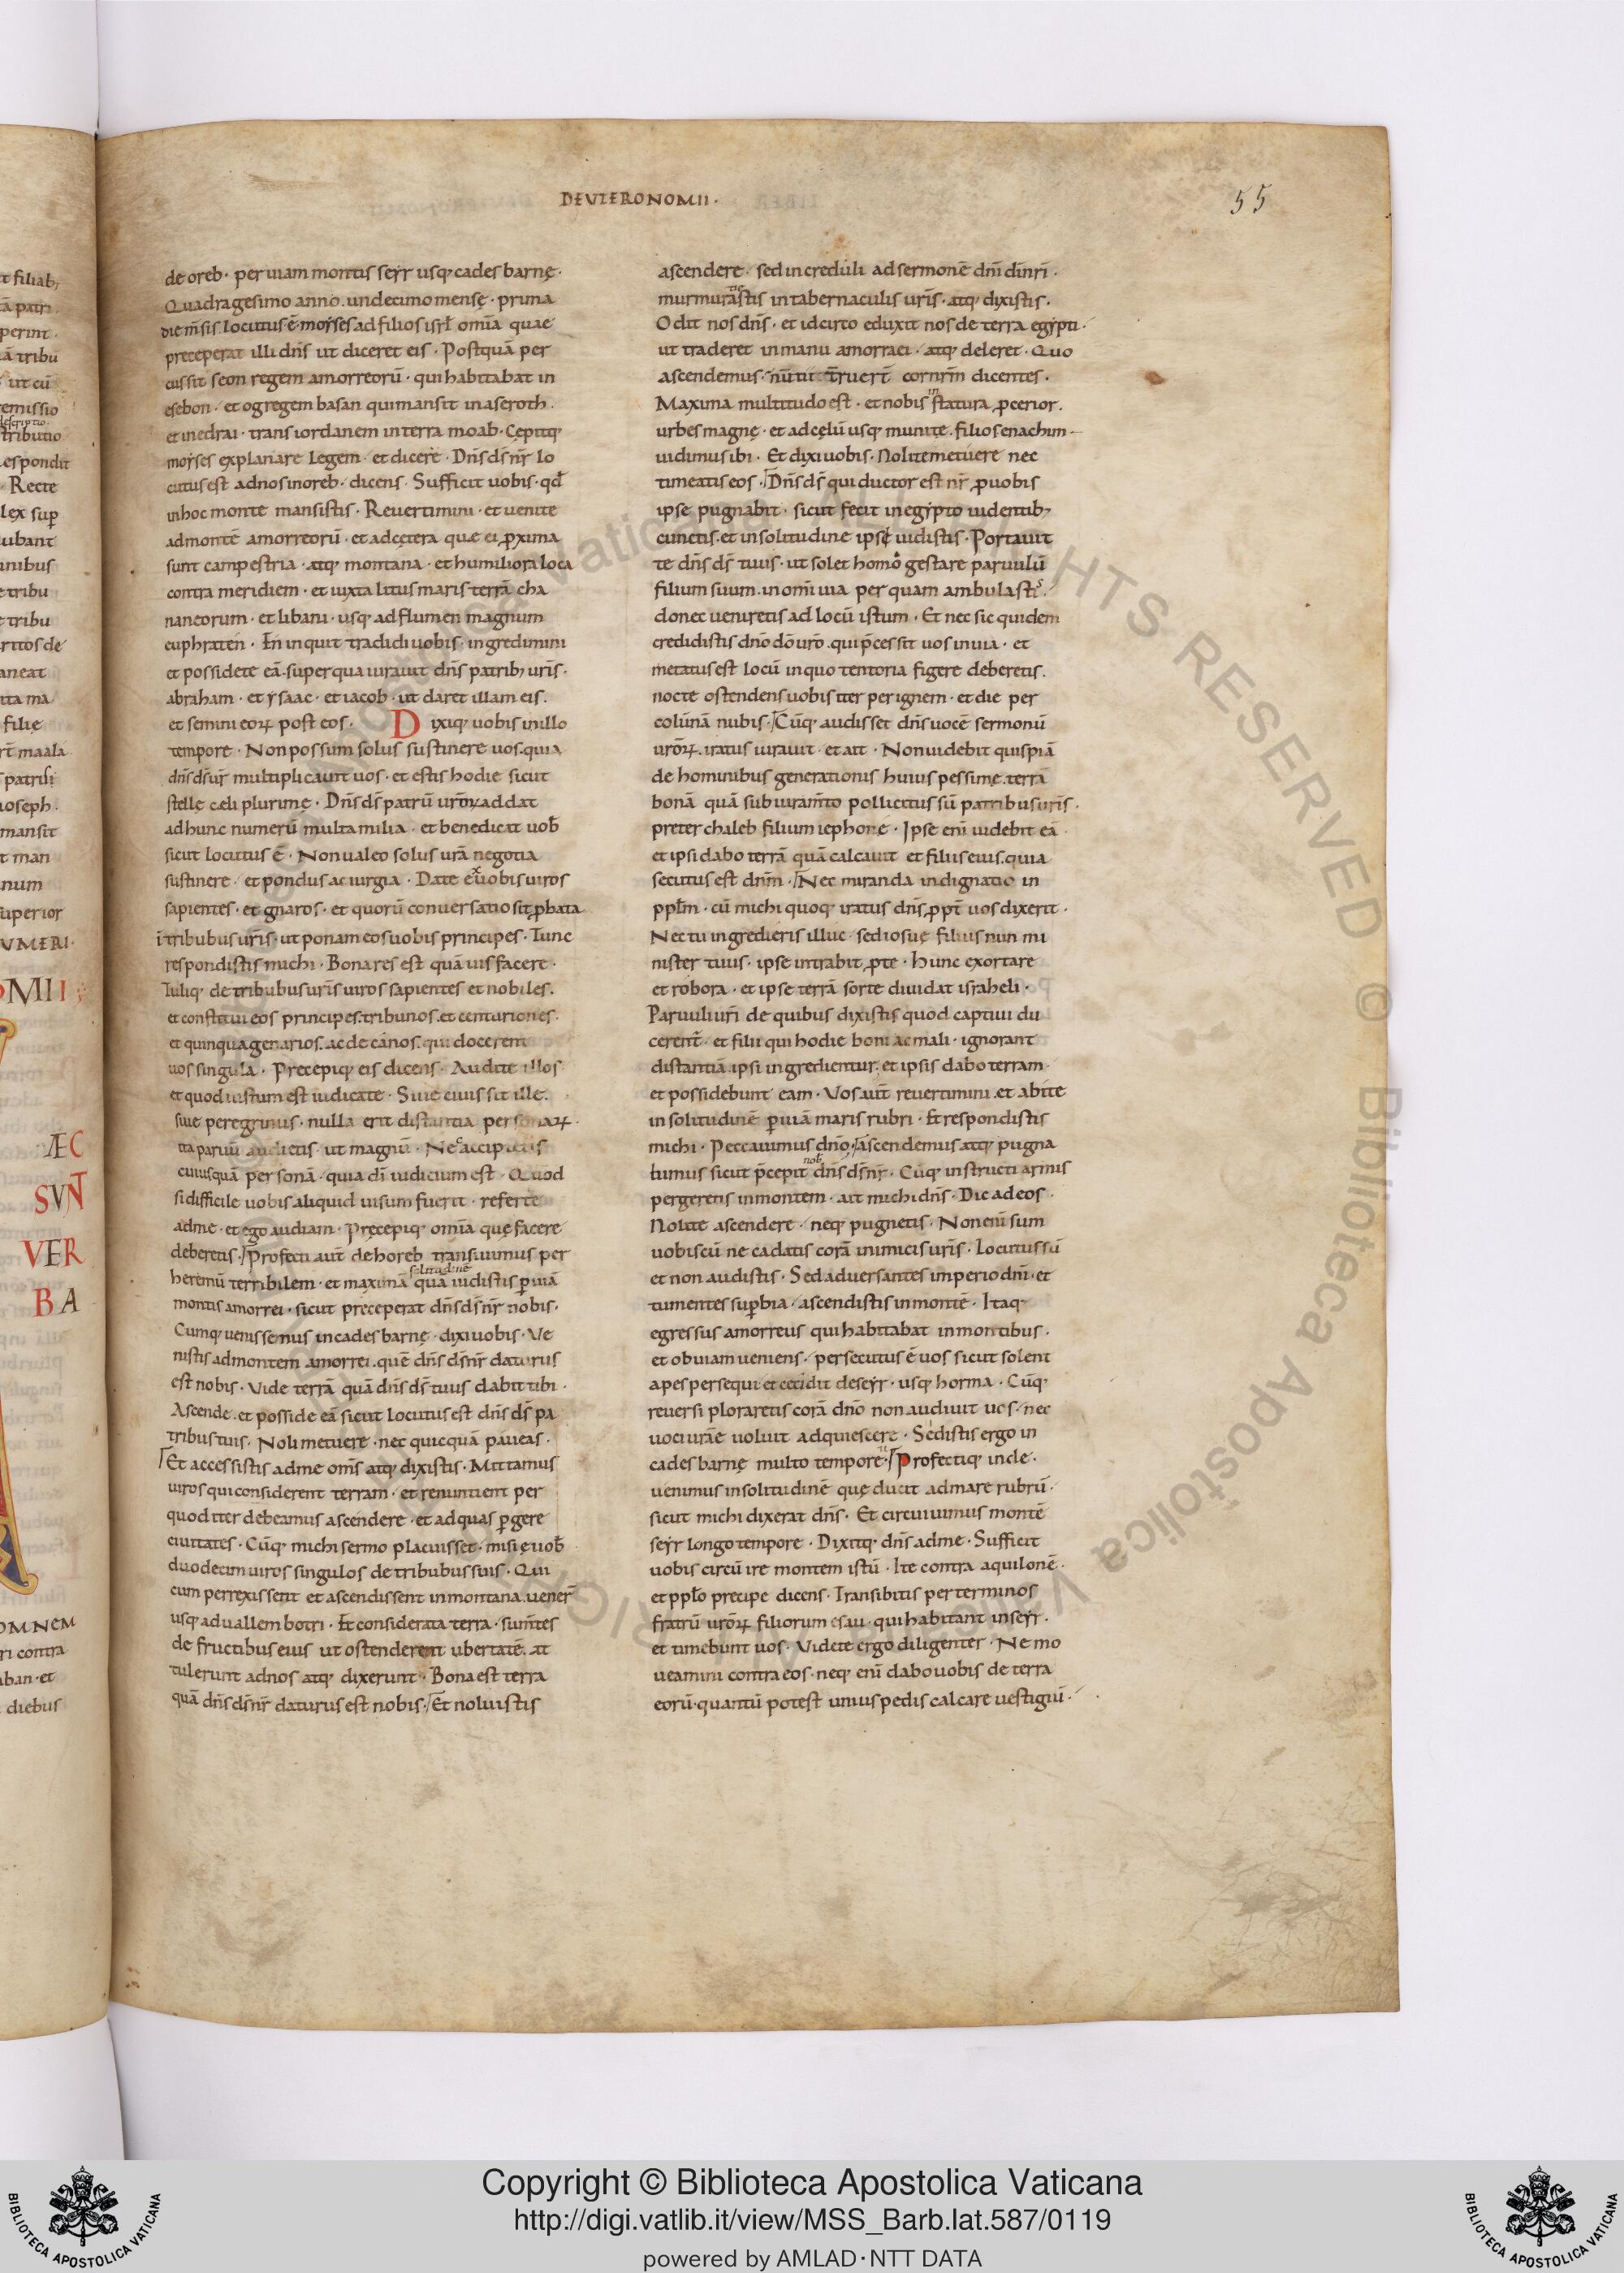 DEUTERONOMII·
55
de oreb· per uiam montis seyr usq; cades barnę·
Quadragesimo anno. undecimo mense· prima
die m̄sis. locutus ē· moyses ad filios isrl̄ om̄ia quae
preceperat illi dn̄s ut diceret eis· Postquā per
cussit seon regem amorreorū· qui habitabat in
esebon· et og regem basan qui mansit in aseroth·
et in edrai· trans iordanem in terra moab· Cępitq;
moyses explanare legem· et dicere· Dn̄s ds̄ nr̄ lo
cutus est ad nos in oreb· dicens· Sufficit uobis· qd̄
in hoc monte mansistis· Reuertimini· et uenite
ad montē amorreorū· et ad cętera quae ei ꝓxima
sunt campestria· atq; montana· et humiliora loca
contra meridiem· et iuxta litus maris· terrā cha
naneorum· et libani· usq; ad flumen magnum
euphraten· En inquit tradidi uobis· ingredimini
et possidete eā. super qua iurauit dn̄s patrib; uris̄·
abraham· et ysaac· et iacob· ut daret illam eis.
et semini eoꝝ post eos· Dixiq; uobis in illo
tempore· Non possum solus sustinere uos. quia
dn̄s ds̄ ur̄ multiplicauit uos· et estis hodie sicut
stelle cæli plurimę· Dn̄s ds̄ patrū uroꝝ addat
ad hunc numerū multa milia· et benedicat uob̄
sicut locutus ē· Non ualeo solus urā negotia
sustinere· et pondus ac iurgia· Date ex uobis uiros
sapientes· et gnaros· et quorū conuersatio sit ꝓbata
ī tribubus uris̄· ut ponam eos uobis principes· Tunc
respondistis michi· Bona res est quā uis facere·
Tuliq; de tribubus uris̄ uiros sapientes et nobiles.
et constitui eos principes. tribunos. et centuriones.
et quinquagenarios. ac decanos. qui docerent
uos singula· Precepiq; eis dicens· Audite illos
et quod iustum est iudicate· Siue ciuis sit ille.
siue peregrinus· nulla erit distantia personaꝝ·
ita paruū audietis· ut magnū· Nec accipietis
cuiusquā personā· quia dī iudicium est· Quod
si difficile uobis aliquid uisum fuerit· referte
ad me· et ego audiam· Pręcepiq; om̄ia quę facere
deberetis· Profecti aut̄ de horeb transiuimus per
heremū terribilem· et maximā solitudinē quā uidistis ꝑ uiā
montis amorrei· sicut preceperat dn̄s ds̄ nr̄ nobis·
Cumq; uenissemus in cades barnę· dixi uobis· Ve
nistis ad montem amorrei. quē dn̄s ds̄ nr̄ daturus
est nobis· Vide terrā quā dn̄s ds̄ tuus dabit tibi·
Ascende. et posside eā sicut locutus est dn̄s ds̄ pa
tribus tuis· Noli metuere· nec quicquā paueas·
Et accessistis ad me om̄s atq; dixistis· Mittamus
uiros qui considerent terram· et renuntient per
quod iter debeamus ascendere· et ad quas ꝑgere
ciuitates· Cūq; michi sermo placuisset· misi ę uob̄
duodecim uiros singulos de tribubus suis· Qui
cum perrexissent et ascendissent in montana. uener̄
usq; ad uallem botri· Et considerata terra· sum̄tes
de fructibus eius ut ostenderent ubertatē. at
tulerunt ad nos atq; dixerunt· Bona est terra
quā dn̄s ds̄ nr̄ daturus est nobis· Et noluistis
ascendere· sed increduli ad sermonē dnī dī nrī·
murmurastis in tabernaculis uris̄· atq; dixistis·
Odit nos dn̄s· et idcirco eduxit nos de terra egypti·
ut traderet in manu amorraei· atq; deleret· Quo
ascendemus· cor nrm̄ dicentes·
Maxima multitudo est· et nobis in statura ꝓcerior.
urbes magnę· et ad cęlū usq; munitę. filios enachim
uidimus ibi· Et dixi uobis· Nolite metuere nec
timeatis eos· Dn̄s ds̄ qui ductor est nr̄ ꝓ uobis
ipse pugnabit· sicut fecit in egypto uidentib;
cunctis. et in solitudine ipse uidistis· Portauit
te dn̄s ds̄ tuus· ut solet homo gestare paruulū
filium suum. in om̄i uia per quam ambulasti·
donec ueniretis ad locū istum· Et nec sic quidem
credidistis dn̄o dō uro. qui p̄cessit uos in uia· et
metatus est locū in quo tentoria figere deberetis.
nocte ostendens uobis iter per ignem· et die per
colūnā nubis· Cūq; audisset dn̄s uocē sermonū
uroꝝ. iratus iurauit· et ait· Non uidebit quispiā
de hominibus generationis huius pessimę. terrā
bonā quā sub iuram̄to pollicitus sū patribus uris̄·
preter chaleb filium iephone· Ipse eni uidebit eā·
et ipsi dabo terrā quā calcauit et filiis eius. quia
secutus est dnm̄· Nec miranda indignatio in
pplm̄· cū michi quoq; iratus dn̄s ꝓpt̄ uos dixerit·
Nec tu ingredieris illuc· sed iosue filius nun mi
nister tuus· ipse intrabit ꝓ te· Hunc exortare
et robora· et ipse terrā sorte diuidat israheli·
Paruuli urī de quibus dixistis quod captiui du
cerent̄· et filii qui hodie boni ac mali· ignorant
distantiā. ipsi ingredientur. et ipsis dabo terram
et possidebunt eam· Vos aut̄ reuertimini. et abite
in solitudinē ꝑ uiā maris rubri· Et respondistis
michi· Peccauimus dn̄o· ascendemus atq; pugna
bimus sicut p̄cepit nob̄ dn̄s ds̄ nr̄· Cūq; instructi armis
pergeretis in montem· ait michi dn̄s· Dic ad eos·
Nolite ascendere· neq; pugnetis· Non enī sum
uobiscū ne cadatis corā inimicis uris̄· Locutus sū
et non audistis· Sed aduersantes imperio dnī· et
tumentes suꝑbia· ascendistis in montē· Itaq;
egressus amorreus qui habitabat in montibus·
et obuiam ueniens· persecutus ē uos sicut solent
apes persequi et cecidit de seyr· usq; horma· Cūq;
reuersi ploraretis corā dn̄o non audiuit uos· nec
uoci urae uoluit adquiescere· Sedistis ergo in
cades barnę multo tempore· Profectiq; inde·
uenimus in solitudinē quę ducit ad mare rubrū·
sicut michi dixerat dn̄s· Et circuiuimus montē
seyr longo tempore· Dixitq; dn̄s ad me· Sufficit
uobis circūire montem istū· Ite contra aquilonē·
et pplō precipe dicens· Transibitis per terminos
fratrū uroꝝ filiorum esau· qui habitant in seyr·
et timebunt uos· Videte ergo diligenter· Ne mo
ueamini contra eos· neq; enī dabo uobis de terra
eorū· quantū potest unius pedis calcare uestigiū·
OMII
ÆC
SVNT
VER
BA
Copyright © Biblioteca Apostolica Vaticana
http://digi.vatlib.it/view/MSS_Barb.lat.587/0119
powered by AMLAD·NTT DATA
BIBLIOTECA APOSTOLICA VATICANA
BIBLIOTECA APOSTOLICA VATICANA